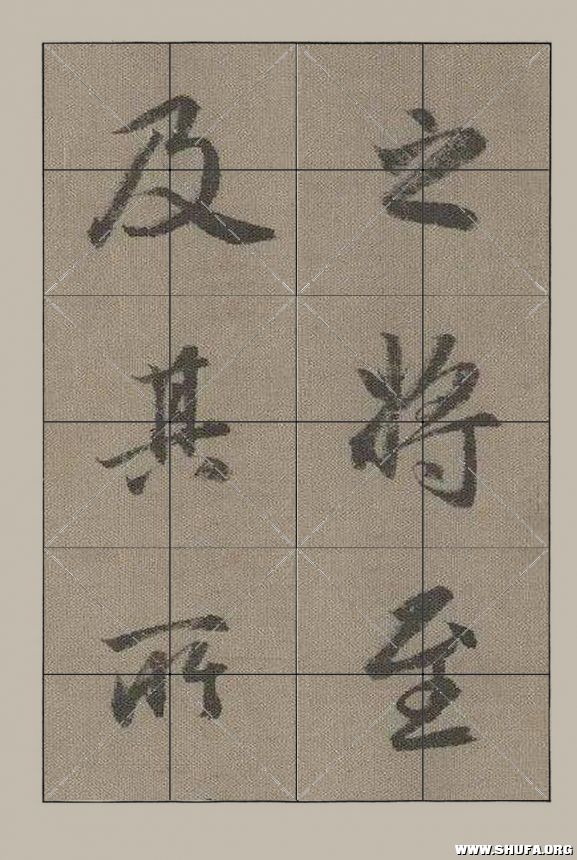 之将至
及其所
WWW.SHUFA.ORG